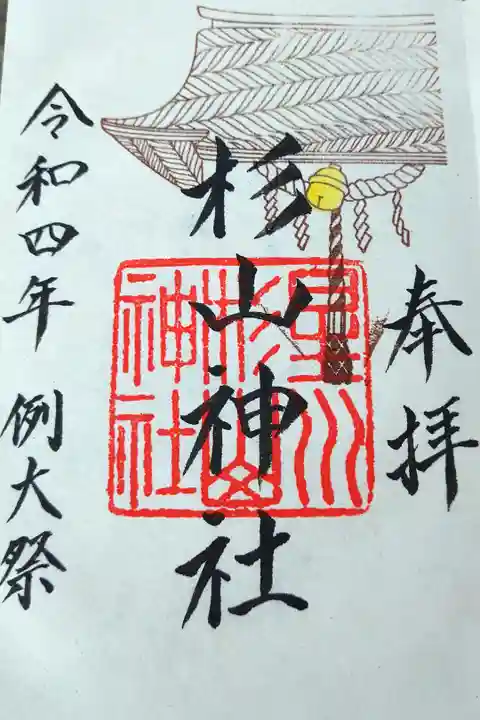 奉拝
杉山神社
星川
杉山
神社
令和四年 例大祭